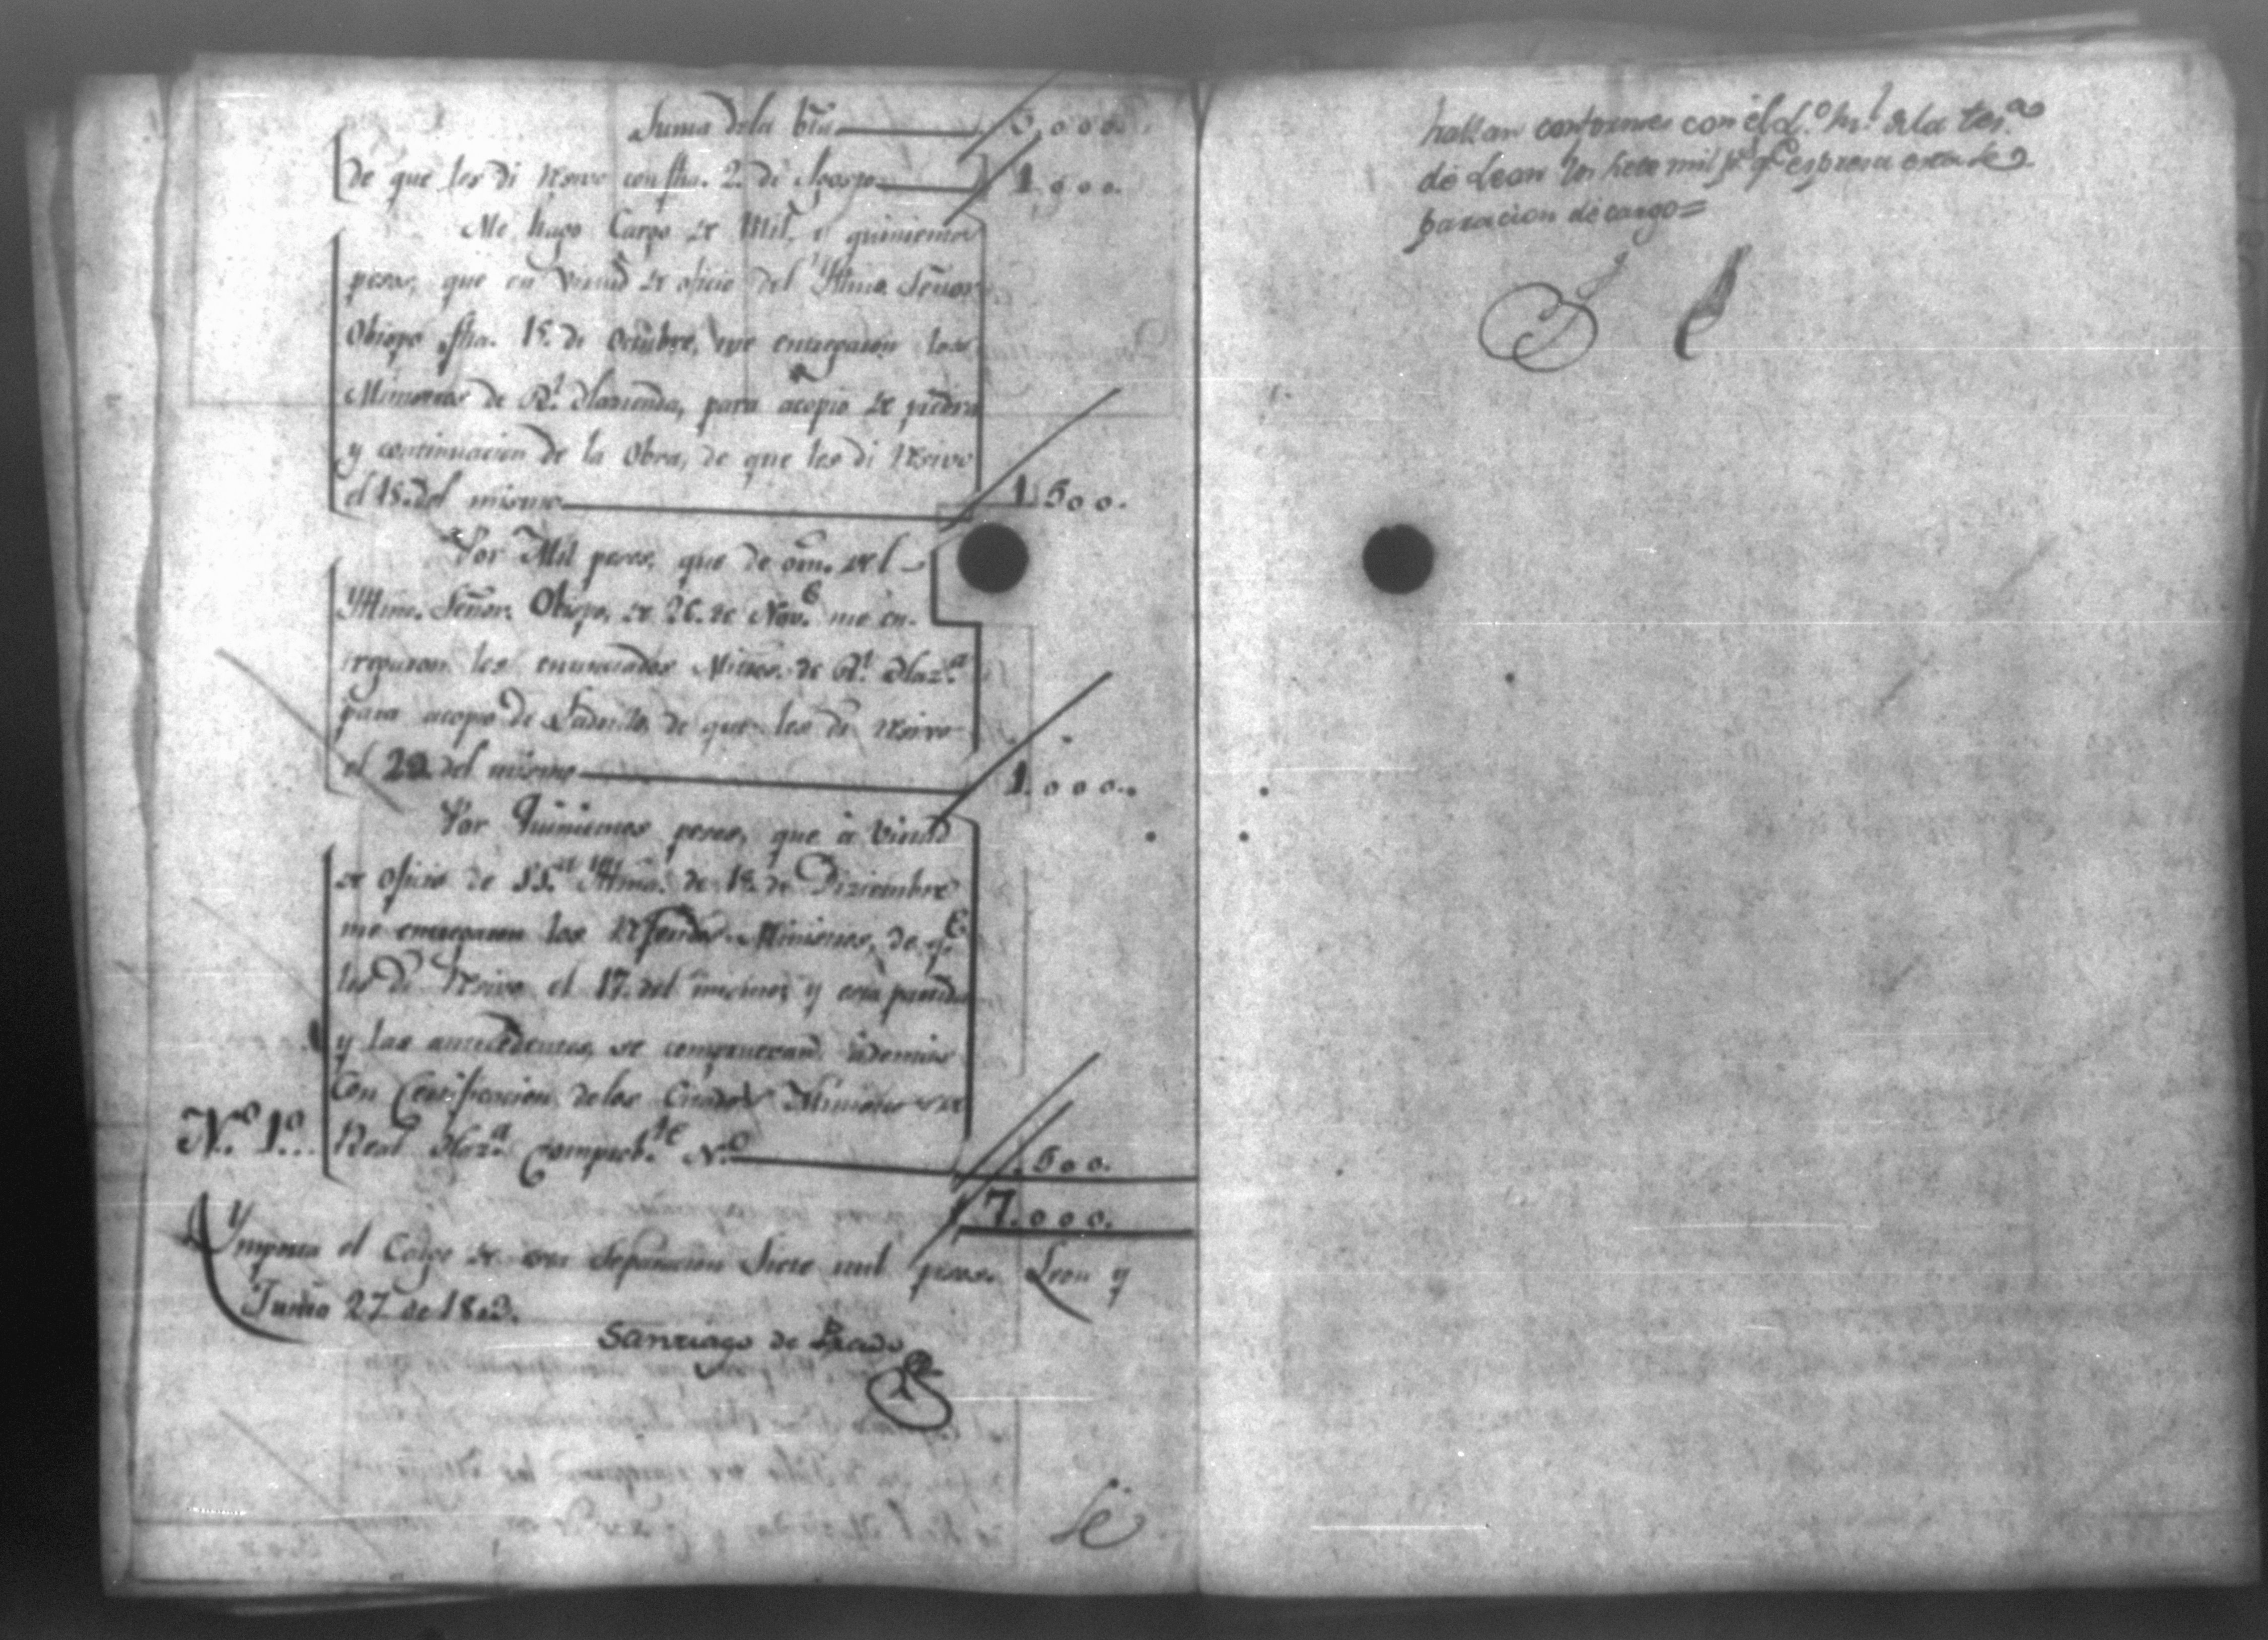 Suma dela bta
de que les di resivo con fha. 2. de Agosto 1.000.
Me hago Cargo de Mil, y quinientos
pesos, que en virtud de oficio del Yltmo. Señor
Obispo fha. 15. de Octubre, me entregaron los
Ministros de Rl. Hacienda, para acopio de piedra
y continuacion de la Obra, de que les di resivo
el 18. del mismo 1.500.
Por Mil pesos, que de orn. del
Yltmo. Señor. Obispo, de 26. de Nove. me en-
tregaron los enunciados Mitros. de Rl. Haza.
para acopio de Ladrillo, de que les di resivo
el del mismo 1.000.
Por Quinientos pesos, que à virtud
de oficio de SSa. Yltma. de 15. de Diziembre
me entregaron los referidos Ministros, de qe.
les di resivo el 17. del mismo; y esta partida
y las antecedentes, se comprueban ademas
Con Certificacion delos Citados Ministros de
No. 1o. Real Haza. Comprobte. No. 500.
7.000.
Ymporta el Cargo de esta Separacion Siete mil pesos. Leon y
Junio 27 de
Santiago de
hallan conformes con el de la tesa.
de Leon los siete mil ps. qe. espresa esta se
paracion de cargo=